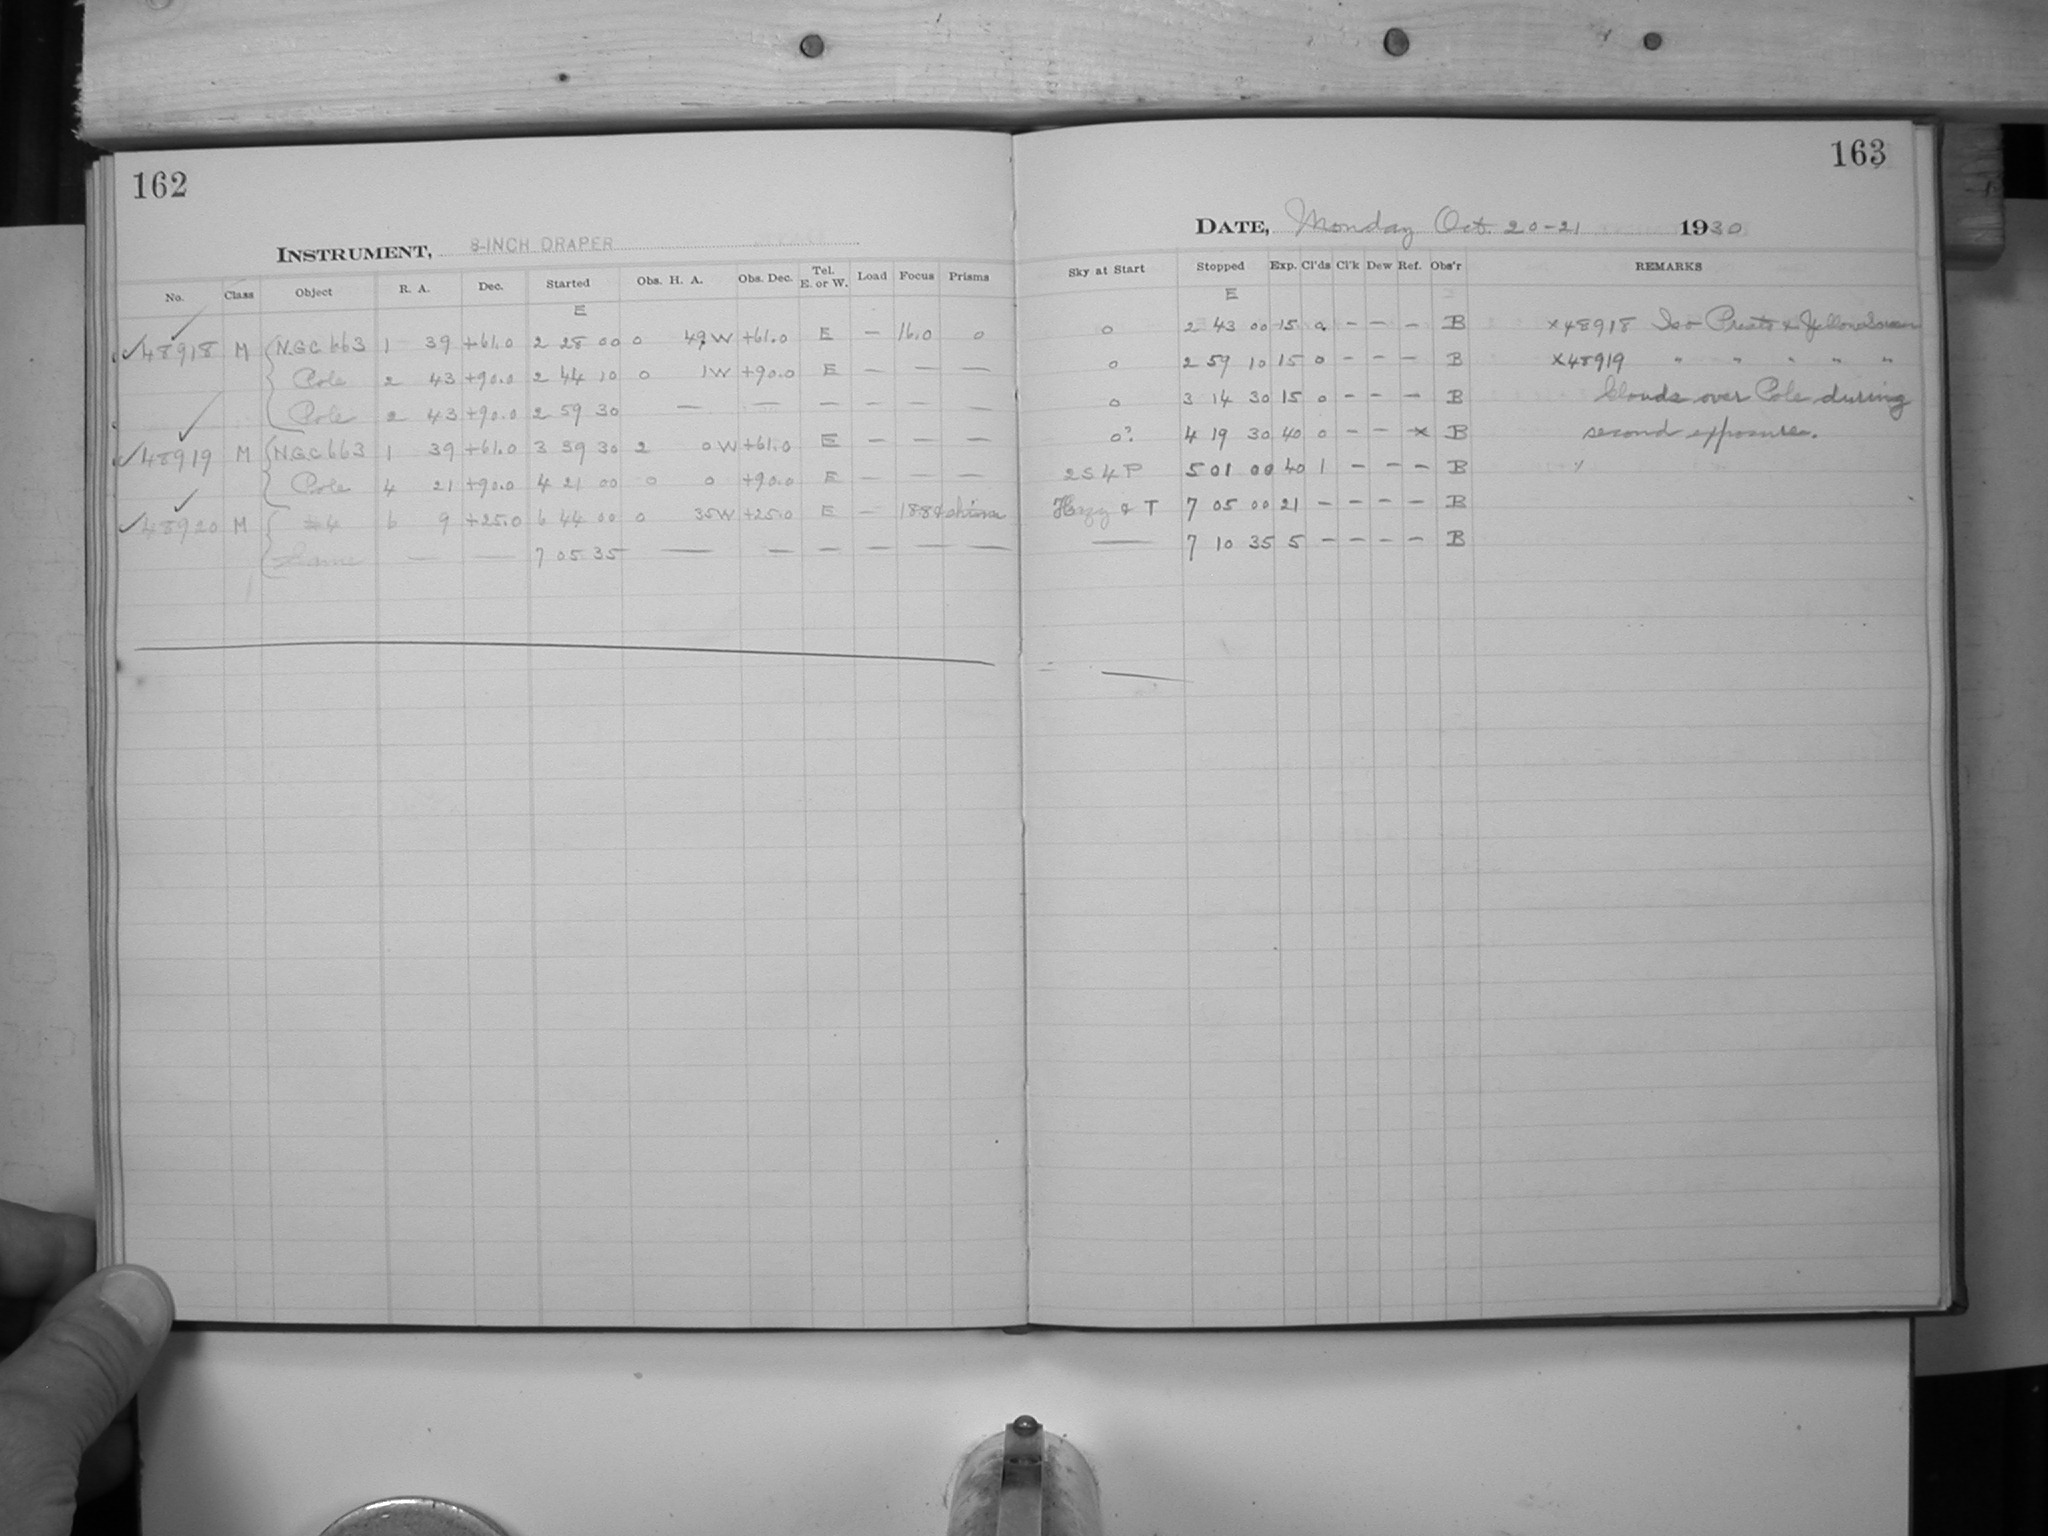 162
INSTRUMENT, 8-INCH DRAPER
No. Class Object R. A. Dec. Started Obs. H. A. Obs. Dec. Tel. E. or W. Load Focus Prisms
E
✓48918 M NGC 663 1 39 +61.0 2 28 00 0 49W +61.0 E — 16.0 0
Pole 2 43 +90.0 2 44 10 0 1W +90.0 E — — —
Pole 2 43 +90.0 2 59 30 — — — — — —
✓48919 M NGC 663 1 39 +61.0 3 39 30 2 0W +61.0 E — — —
Pole 4 21 +90.0 4 21 00 0 0 +90.0 E — — —
✓48920 M #4 6 9 +25.0 6 44 00 0 35W +25.0 E —
Same — — 7 05 35 — — — — — —
163
DATE, Monday Oct. 20-21 1930
Sky at Start Stopped Exp. Cl'ds Cl'k Dew Ref. Obs'r REMARKS
E
0 2 43 00 15 0 – – – B ×48918 Iso Presto & Yellow Screen
0 2 59 10 15 0 – – – B ×48919 " " " " "
0 3 14 30 15 0 – – – B Clouds over Pole during
0? 4 19 30 40 0 – – × B second exposure.
2S4P 5 01 00 40 1 – – – B
Hazy & T 7 05 00 21 – – – – B
— 7 10 35 5 – – – – B